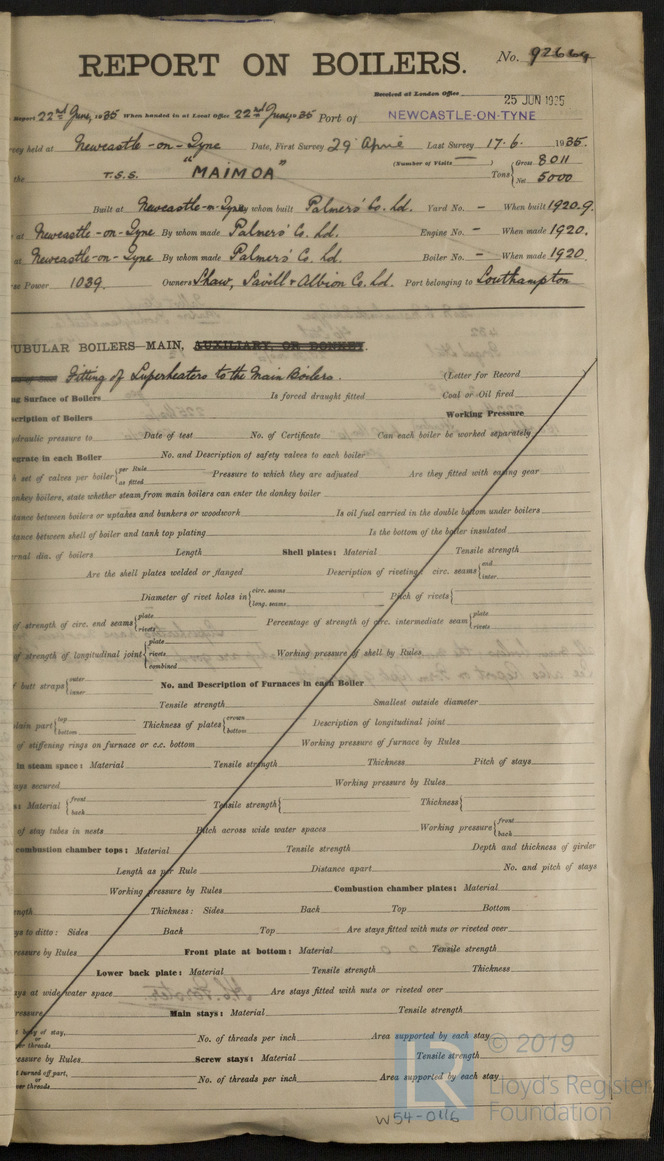 REPORT ON BOILERS.
No. 92664
Received at London Office
25 JUN 1935
Report 22nd June, 1935 When handed in at Local Office 22nd June, 1935 Port of NEWCASTLE-ON-TYNE
held at Newcastle-on-Tyne Date, First Survey 29 April Last Survey 17.6. 1935.
(Number of Visits — )
the T.S.S. "MAIMOA" Tons { Gross 8011 Net 5000
Built at Newcastle-on-Tyne By whom built Palmers' Co. Ld. Yard No. – When built 1920.9.
at Newcastle-on-Tyne By whom made Palmers' Co. Ld. Engine No. – When made 1920.
at Newcastle-on-Tyne By whom made Palmers' Co. Ld. Boiler No. – When made 1920
Power 1039. Owners Shaw, Savill & Albion Co. Ld. Port belonging to Southampton
TUBULAR BOILERS—MAIN, AUXILIARY, OR DONKEY.
Fitting of Superheaters to the Main Boilers. (Letter for Record )
Surface of Boilers Is forced draught fitted Coal or Oil fired
Description of Boilers Working Pressure
hydraulic pressure to Date of test No. of Certificate Can each boiler be worked separately
grate in each Boiler No. and Description of safety valves to each boiler
set of valves per boiler { per Rule as fitted Pressure to which they are adjusted Are they fitted with easing gear
donkey boilers, state whether steam from main boilers can enter the donkey boiler
distance between boilers or uptakes and bunkers or woodwork Is oil fuel carried in the double bottom under boilers
distance between shell of boiler and tank top plating Is the bottom of the boiler insulated
dia. of boilers Length Shell plates: Material Tensile strength
Are the shell plates welded or flanged Description of riveting: circ. seams { end inter.
Diameter of rivet holes in { circ. seams long. seams Pitch of rivets {
of strength of circ. end seams { plate rivets Percentage of strength of circ. intermediate seam { plate rivets
of strength of longitudinal joint { plate rivets combined Working pressure of shell by Rules
of butt straps { outer inner No. and Description of Furnaces in each Boiler
Tensile strength Smallest outside diameter
plain part { top bottom Thickness of plates { crown bottom Description of longitudinal joint
of stiffening rings on furnace or c.c. bottom Working pressure of furnace by Rules
in steam space: Material Tensile strength Thickness Pitch of stays
secured Working pressure by Rules
Material { front back Tensile strength { Thickness {
of stay tubes in nests Pitch across wide water spaces Working pressure { front back
combustion chamber tops: Material Tensile strength Depth and thickness of girder
Length as per Rule Distance apart No. and pitch of stays
Working pressure by Rules Combustion chamber plates: Material
Thickness: Sides Back Top Bottom
to ditto: Sides Back Top Are stays fitted with nuts or riveted over
pressure by Rules Front plate at bottom: Material Tensile strength
Lower back plate: Material Tensile strength Thickness
at wide water space Are stays fitted with nuts or riveted over
pressure Main stays: Material Tensile strength
body of stay, or over threads No. of threads per inch Area supported by each stay
pressure by Rules Screw stays: Material Tensile strength
turned off part, or over threads No. of threads per inch Area supported by each stay
© 2019
Lloyd's Register
Foundation
W54-0116